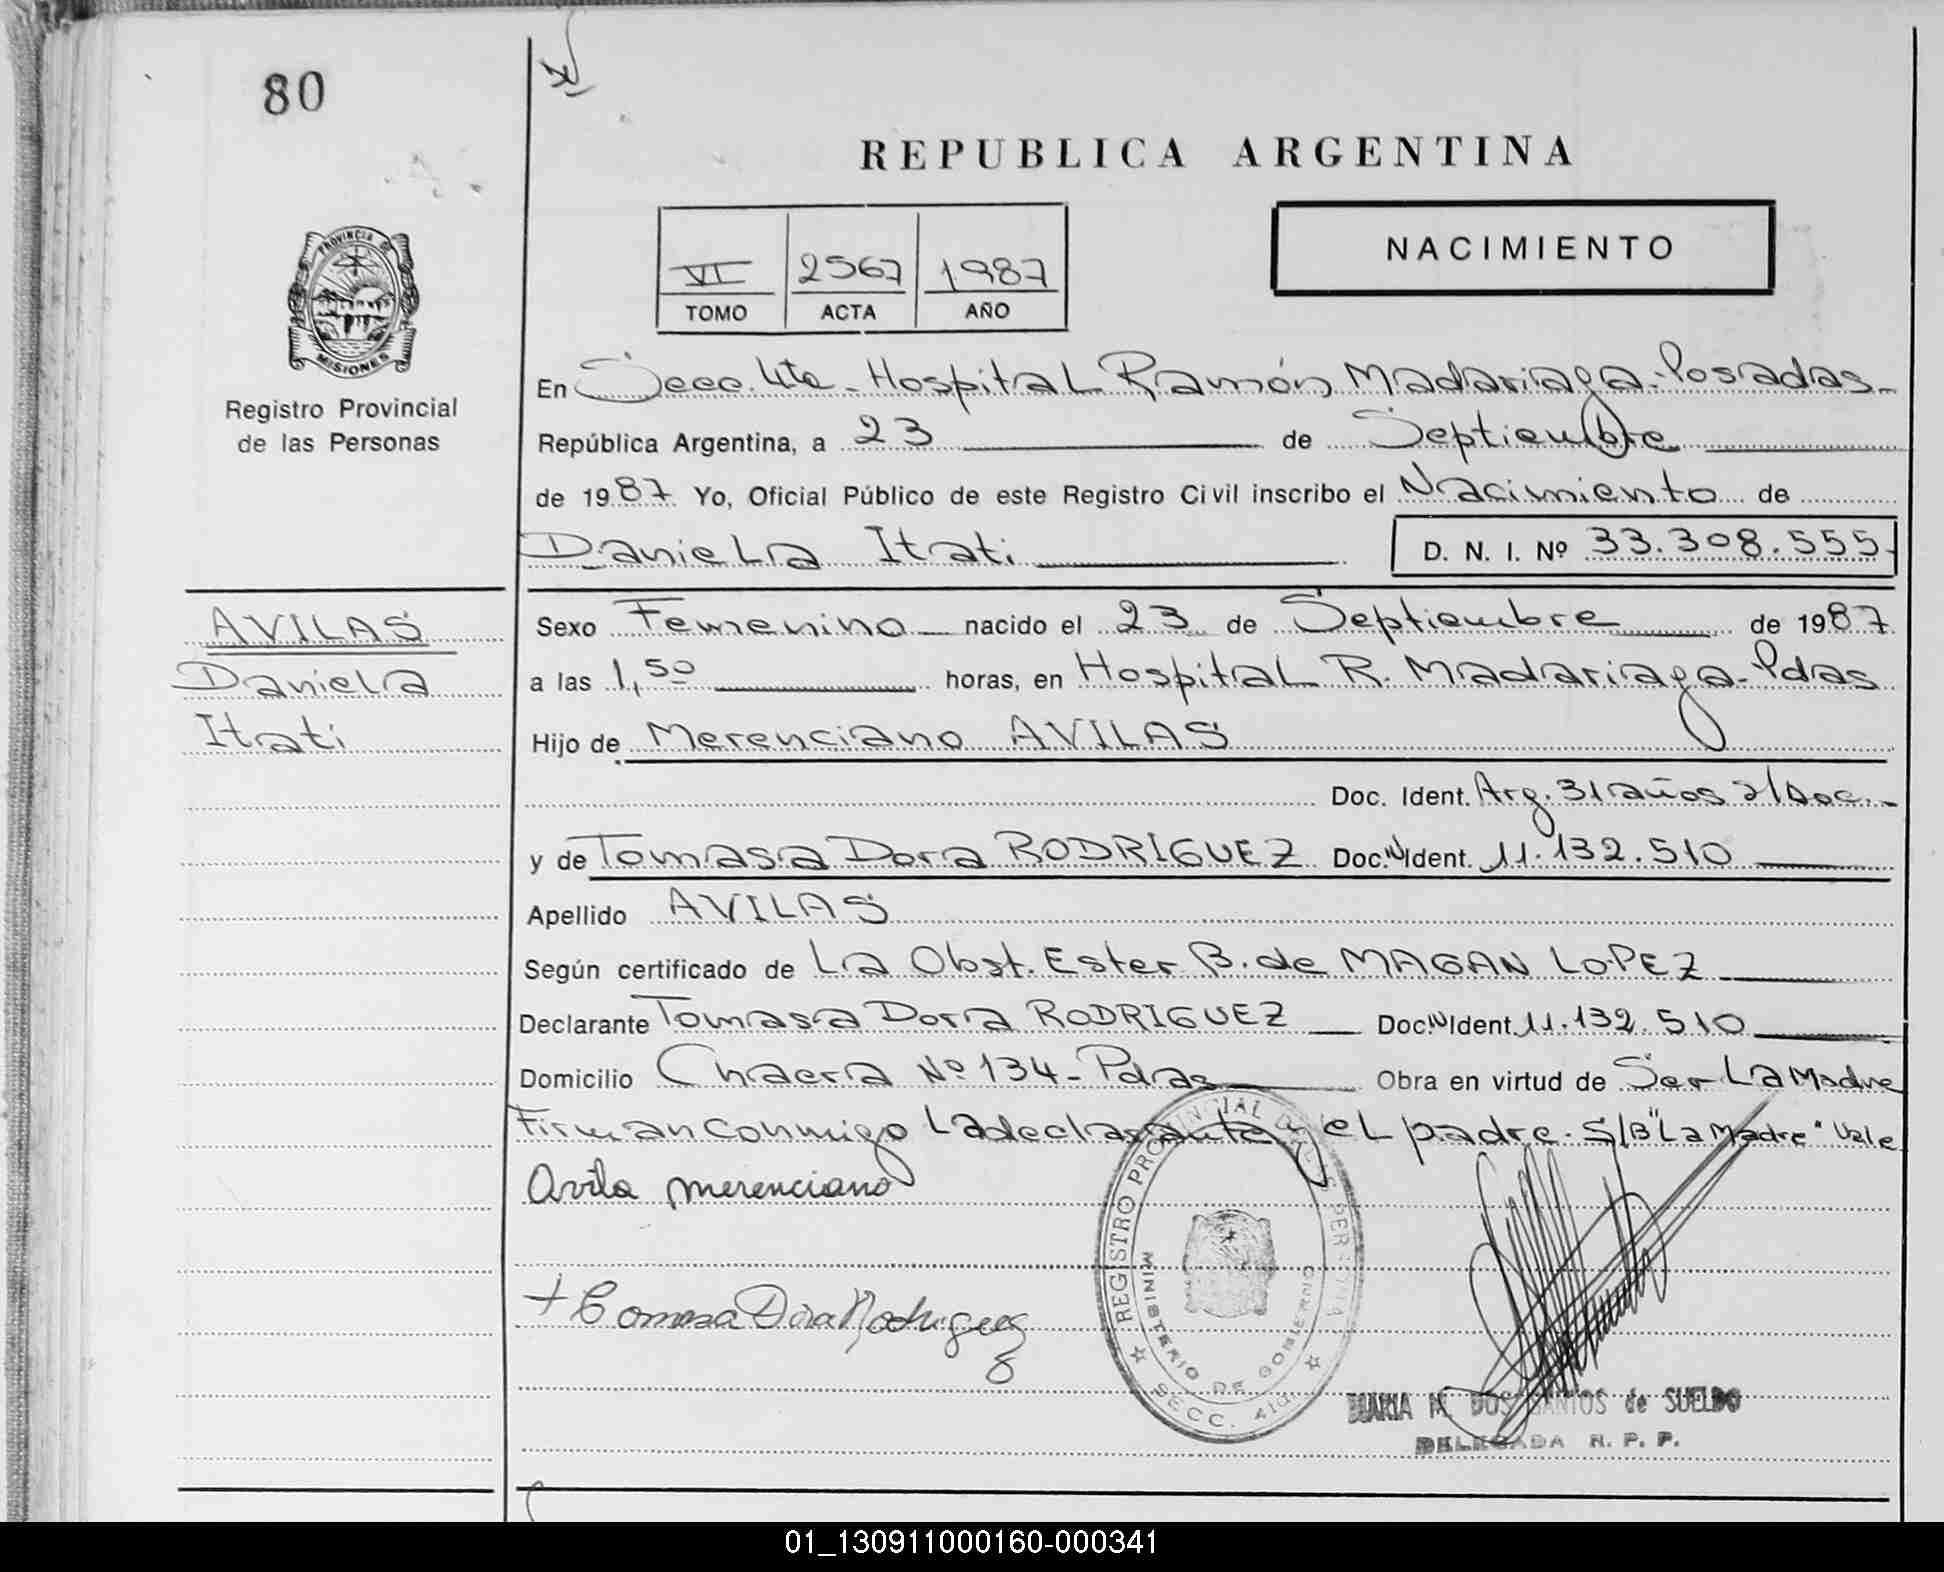 80
REPUBLICA ARGENTINA
PROVINCIA DE
MISIONES
Registro Provincial
de las Personas
VI 2567 1987
TOMO ACTA AÑO
NACIMIENTO
En Secc. 4ta - Hospital Ramón Madariaga - Posadas -
República Argentina, a 23 de Septiembre
de 1987 Yo, Oficial Público de este Registro Civil inscribo el Nacimiento de
Daniela Itati D. N. I. Nº 33.308.555
AVILAS
Daniela
Itati
Sexo Femenino nacido el 23 de Septiembre de 1987
a las 1,50 horas, en Hospital R. Madariaga - Pdas
Hijo de Merenciano AVILAS
Doc. Ident. Arg. 31 años s/Doc. -
y de Tomasa Dora RODRIGUEZ Doc. Ident. 11.132.510
Apellido AVILAS
Según certificado de La Obst. Ester B. de MAGAN LOPEZ
Declarante Tomasa Dora RODRIGUEZ Doc. Ident. 11.132.510
Domicilio Chacra Nº 134 - Pdas Obra en virtud de Ser La Madre
Firman conmigo La declarante y el padre. S/B "La Madre" Vale
Avila merenciano
+ Tomasa Dora Rodriguez
REGISTRO PROVINCIAL DE LAS PERSONAS
MINISTERIO DE GOBIERNO
SECC. 4ta.
MARIA M. DOS SANTOS de SUELDO
DELEGADA R. P. P.
01_130911000160-000341